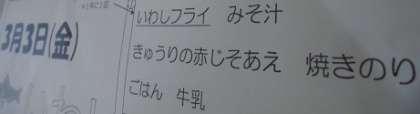 3月3日(金)
いわしフライ　みそ汁
きゅうりの赤じそあえ　焼きのり
ごはん　牛乳